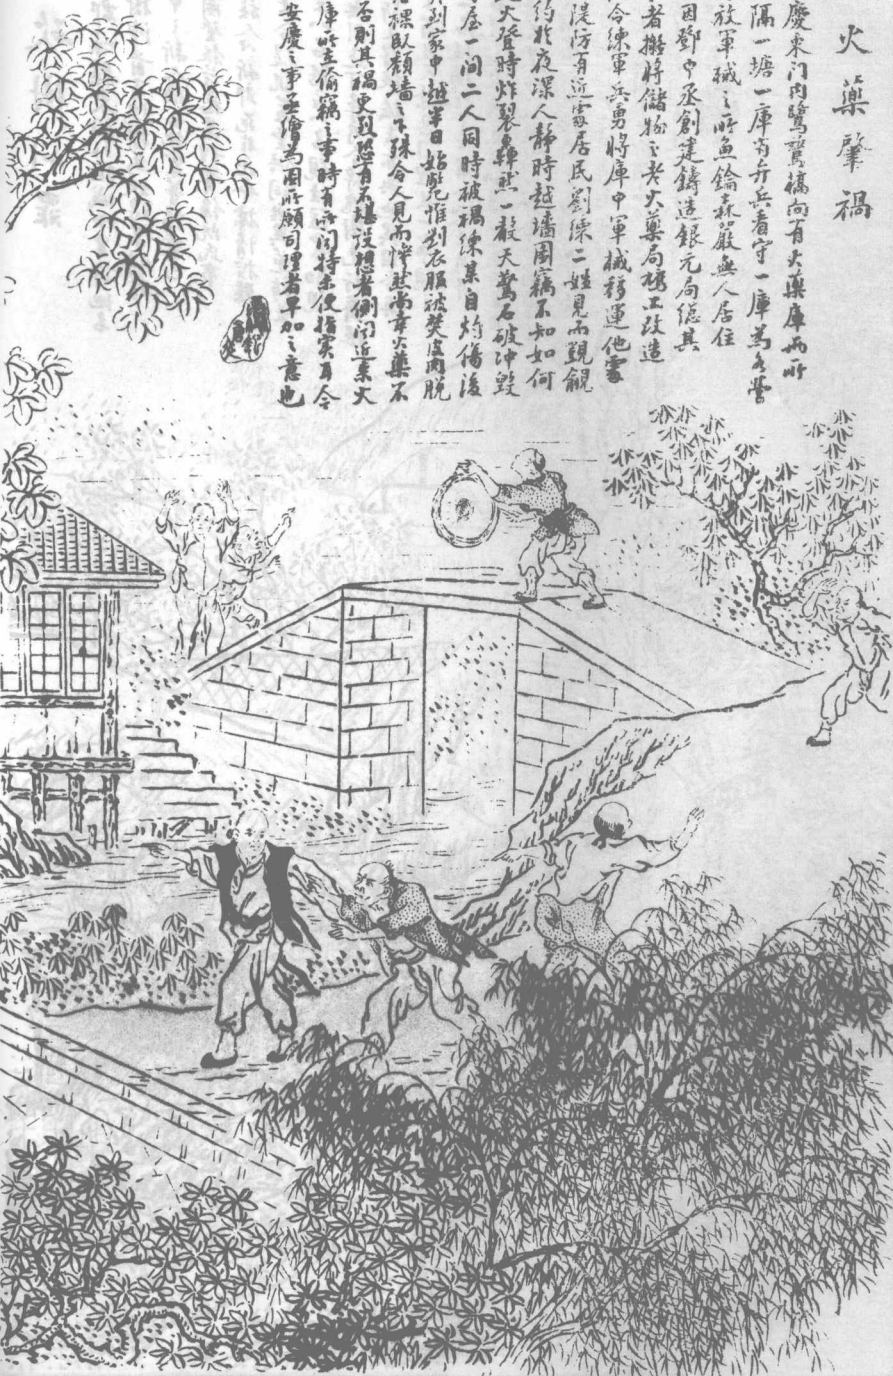 火藥肇禍
慶東門內鷺鷥橋向有火藥庫兩所
隔一塘一庫有弁兵看守一庫為各營
放軍械之所魚鑰森嚴無人居住
因鄧中丞創建鑄造銀元局總其
者擬將儲物之老火藥局興工改造
令練軍兵勇將庫中軍械移運他處
漫防有近處居民劉練二姓見而覬覦
約於夜深人靜時越牆圖竊不知如何
火登時炸裂轟然一聲天驚石破沖毀
屋一間二人同時被禍練某自灼傷後
到家中越半日始斃惟劉衣服被焚皮肉脫
裸臥頹牆之下殊令人見而慘然尚幸火藥不
否則其禍更烈恐有不堪設想者側聞近來火
庫所至偷竊之事時有所聞特未便指實耳今
安慶之事亟繪為圖所願司理者早加之意也